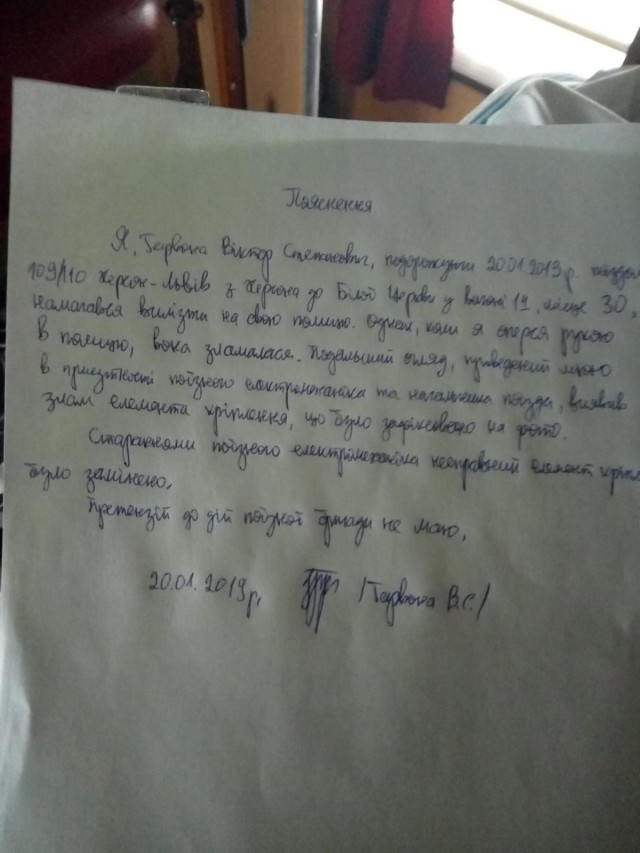 Пояснення
Я, Гарвона Віктор Степанович, подорожуючи 20.01.2019 р. поїздом
109/110 Херсон-Львів з Херсона до Білої Церкви у вагоні 19, місце 30,
намагався вилізти на свою полицю. Однак, коли я оперся рукою
в полицю, вона зламалася. Подальший огляд, проведений мною
в присутності поїзного електромеханіка та начальника поїзда, виявив
злам елемента кріплення, що було зафіксовано на фото.
Стараннями поїзного електромеханіка несправний елемент кріпл
було замінено.
Претензій до дій поїзної бригади не маю.
20.01.2019 р. / В.С./